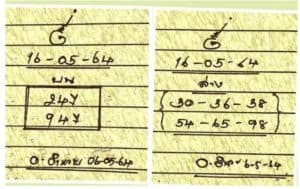 16-05-64
บน
247
947
06-05-64
16-05-64
ล่าง
30-36-38
54-65-98
6-5-64